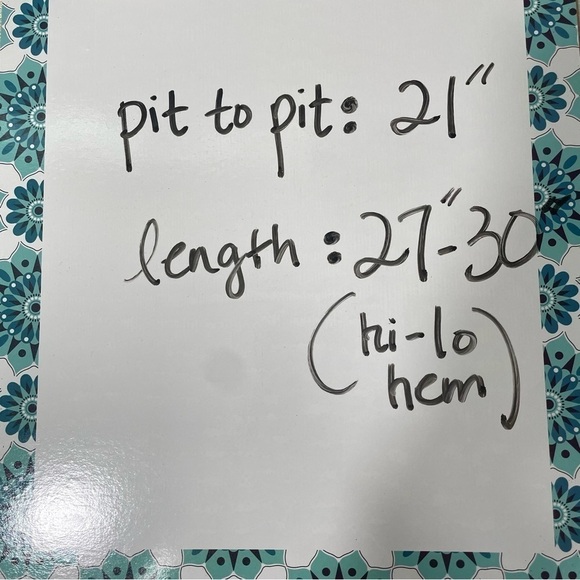 pit to pit: 21"
length: 27"-30"
(hi-lo
hem)